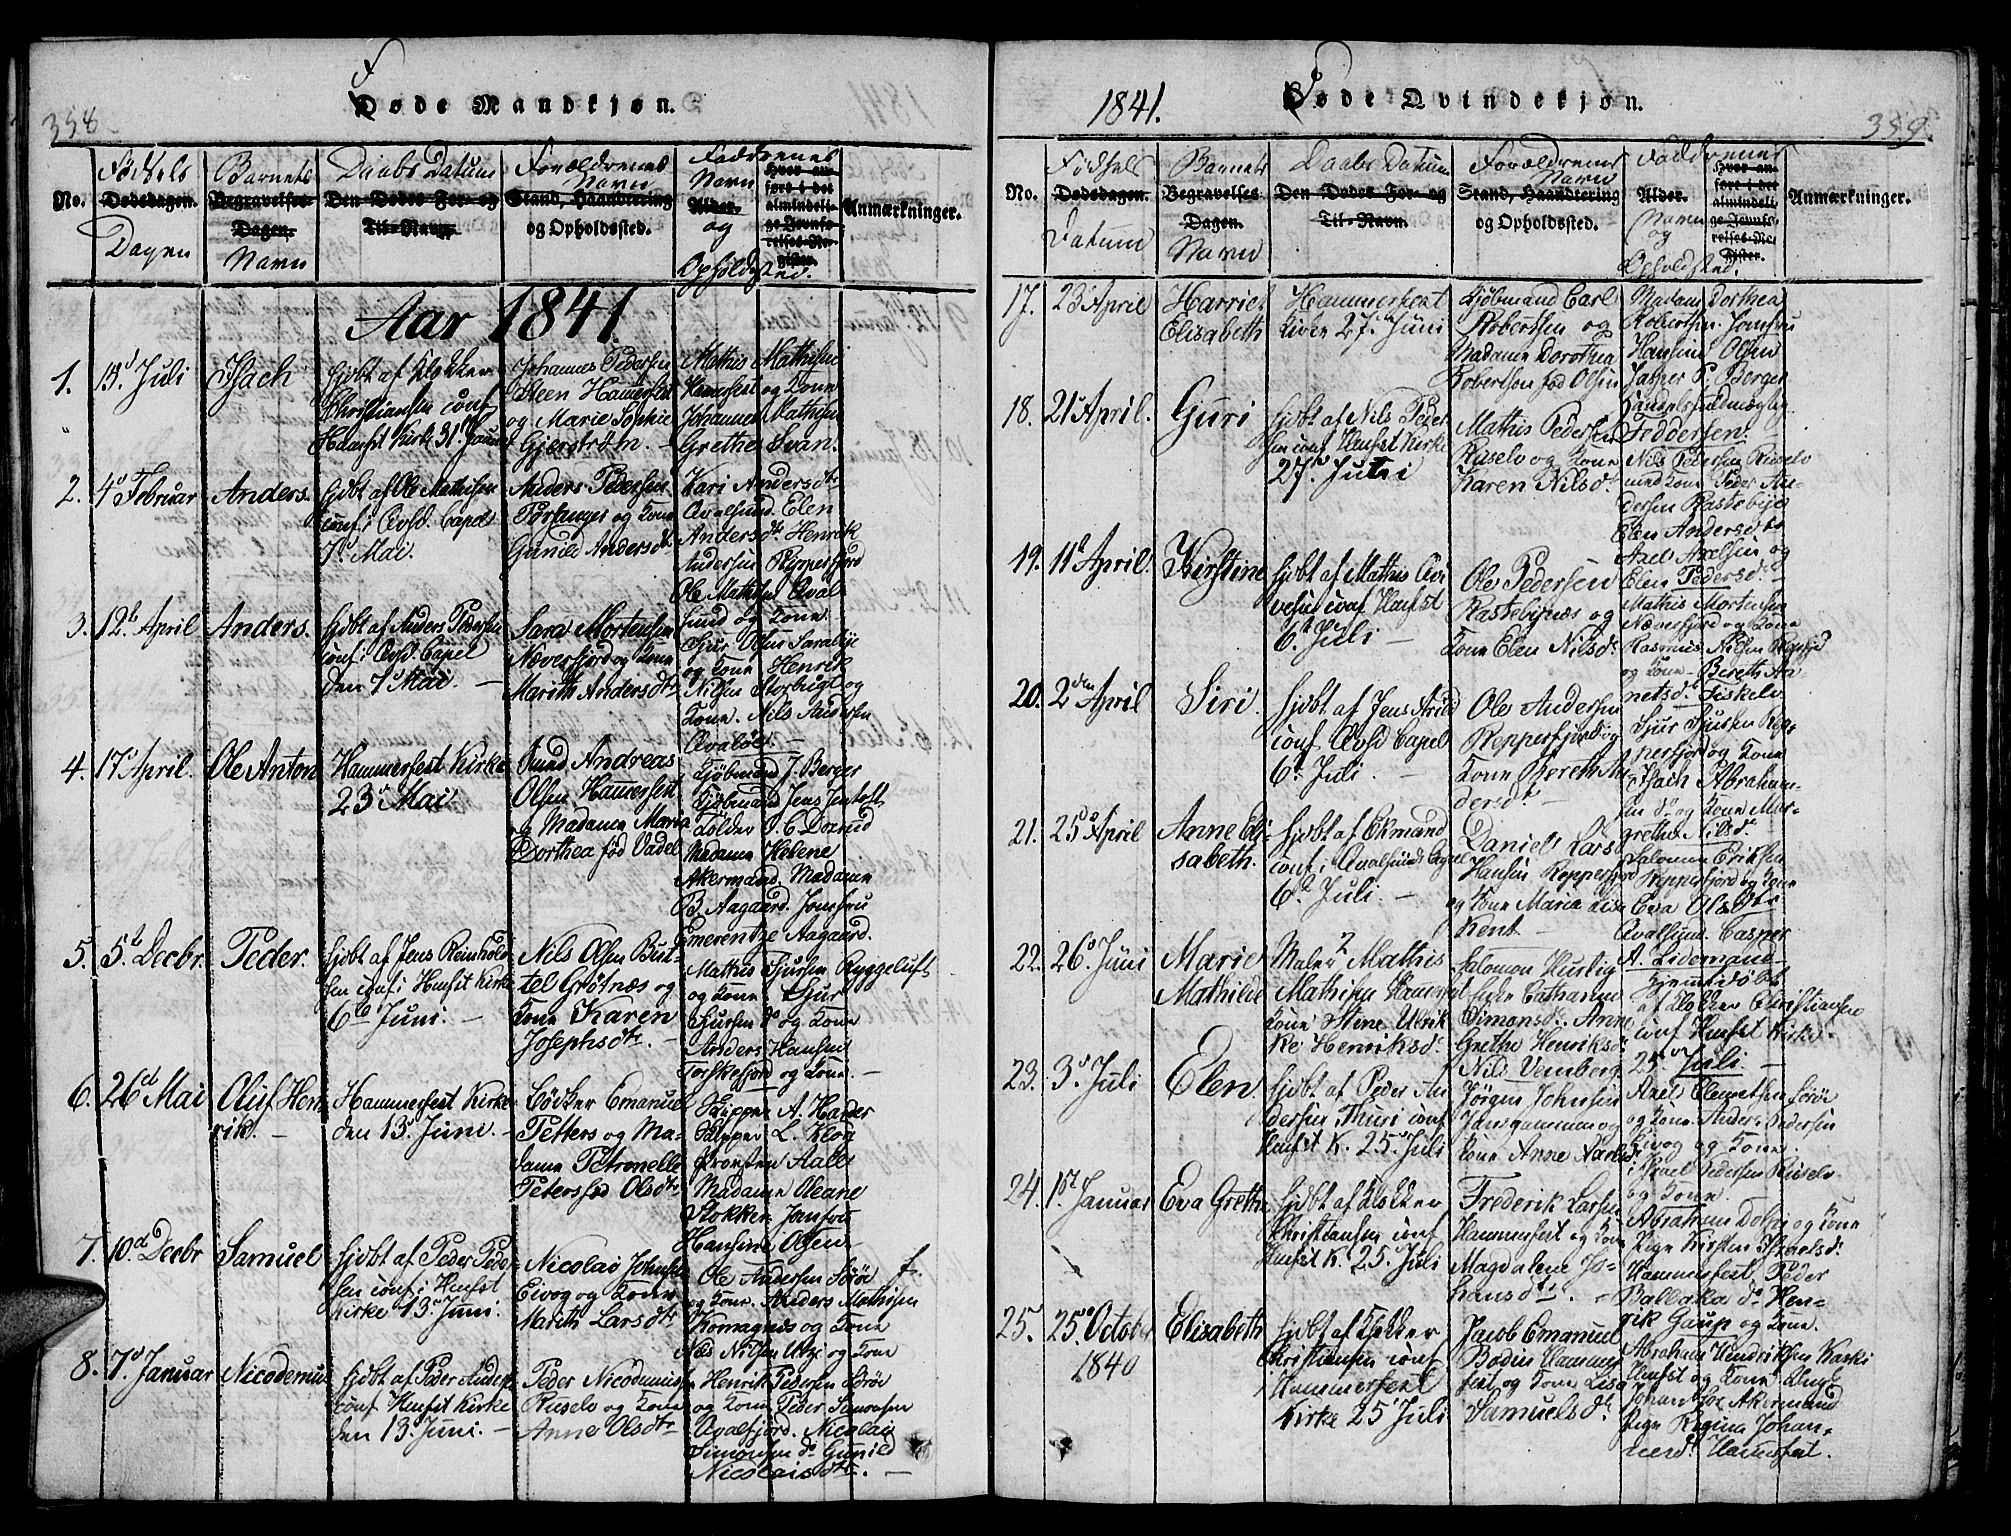 358
Føde Mandkjøn.
No.
Fødsels
Dødsdagen.
Dagen
Barnets
Begravelses-
Dagen,
Navn
Daabs Datum
Den Dødes For- og
Til-Navn.
Forældrenes
Navn
Stand, Haandtering
og Opholdssted.
Faddrenes
Navn
Alder.
og
Opholdssted.
Hvor an-
ført i det
almindeli-
ge Jevnfø-
relses-Re-
gister.
Anmærkninger.
Aar 1841.
1.
13d Juli
Isach
hjdbt af Klokker
Christiansen conf
Hamfst Kirke 31t
Johannes Pedersen
Steen Hamerfest
og Marie Sophie
Gjerstrøm. -
Mathis Mathisen
Hamerfest og Kone
Johannes Mathisen
Grethe Svan.
2.
4d Februar
Anders.
hjdbt af Ole Mathisen
conf i Qvlsd. Capel
7d Mai.
Anders Pedersen
Porsanger og Kone
Gunild Andersdtr
Kari Andersdtr
Qvalsund. Elen
Andersdtr Henrik
Andersen Repperfjord
Ole Mathisen Qval-
sund og Kone.
3.
12te April
Anders.
hjdbt af Anders Pedersen
conf i Qvlsd. Capel
den 7d Mai. -
Sara Mortensen
Næverfjord og Kone
Marith Andersdtr
Sjur Olsen Saraby
og Kone Henrik
Nilsen Storbugt og
Kone. Nils Andersen
Qvaløe. -
4.
17d April.
Ole Anton
Hammerfest Kirke
23d Mai
Andreas
Olsen Hamerfest
og Madame Maria
Dorthea fød Vadel
Kjøbmand J. Berger
Kjøbmand Jens Jentoft
Tolder O. C. Doxrud
Madame Helene
Akermand. Madame
B. Aagaard. Jomfru
Emerentze Aagaard.
5.
5t Decbr.
Peder.
hjdbt af Jens Reinhold-
sen conf i Hamfst Kirke
6te Juni. -
Nils Olsen But-
tel Grøtnæs og
Kone Karen
Josephsdtr. -
Mathis Sjursen Ryggeluft
og Kone. Sjur
Sjursen do og Kone
Anders Hansen
Torskefjord og Kone. -
6.
26d Mai
Oluf Hen-
rik. -
Hammerfest Kirke
den 13d Juni. -
Bødker Emanuel
Petters og Ma-
dame Petronelle
Peters fød Olsdtr
Skipper A. Harder
Skipper L. Kloy
Provsten Aall
Madame Oleane
Stokken Jomfru
Hansine Olsen
7.
10d Decbr
Samuel
hjdbt af Peder Peder-
sen conf i Hamfst
Kirke 13d Juni.
Nicolai Johnsen
Eivog og Kone
Marith Larsdtr
Ole Andersen Sørøe
og Kone. Anders Mathisen
Komagnæs og Kone
Nils Nilsen Utzi og Kone
f.
8.
7d Januar
Nicodemus
hjdbt af Peder Anders.
conf Hamfst Kirke
den 13d Juni. -
Peder Nicodemus
Ruselv og Kone
Anne Olsdtr
Henrik Pedersen Sørøe
og Kone Peder Simonsen
Qvalfjord. Nicolai
Simonsen do Gunild
Nicolaisdtr. -
1841.
Føde Qvindekjøn.
359.
No.
Fødsels
Dødsdagen.
Datum
Barnets
Begravelses-
Dagen.
Navn
Daabs Datum
Den Dødes For- og
Til-Navn.
Forældrenes
Navn
Stand, Haandtering
og Opholdssted.
Faddrenes
Alder.
Navn
og
Opholdssted.
Hvor an-
ført i det
almindeli-
ge Jevnfø-
relses-Re-
gister.
Anmærkninger.
17.
23d April
Harriet
Elisabeth
Hammerfest
Kirke 27de Juni
Kjøbmand Carl
Robertsen og
Madame Dorothea
Robertson fød Olsen
Madam Dorthea
Robertsen. Jomfru
Hansine Olsen
Jasper P. Berger
Handelsfuldmægtig
Feddersen.
18.
21d April.
Guri
hjdbt af Nils Peder-
sen conf Hamfst Kirke
27d Juni
Mathis Pedersen
Ruselv og Kone
Karen Nilsdtr
Nils Pedersen Ruselv
med Kone Peder An-
dersen Rastebye
Elen Andersdtr
19.
11d April.
Kirstine
hjdbt af Mathis
conf Hamfst
6t Juli -
Ole Pedersen
Rastebynæs og
Kone Elen Nilsdtr
Axel Axelsen og
Elen Pedersdtr -
Mathis Mortensen
Næverfjord og Kone
Rasmus Nilsen Repfjd
og Kone - Bereth An-
netsdtr Fiskelv
20.
2den April
Siri.
hjdbt af Jens Arild
conf. Qvlsd Capel
6t Juli. -
Ole Andersen
Repperfjord og
Kone Bereth An-
dersdtr -
Sjur Sjursen Rep-
perfjord og Kone
Isach Abraham-
sen do og Kone Mar-
grethe Nilsdtr
21.
25d April
Anne Eli-
sabeth.
hjdbt af Ekmand
conf i Qvalsunds Capel
6t Juli. -
Daniel Lars
Hansen Repperfjord
og Kone Maria Lisa
Kent -
Salomon Eriksen
Repperfjord og Kone
Eva Olsdtr
Qvalsund. Casper
A. Lidemand -
22.
26d Juni
Marie
Mathilde
Maler Mathis
Mathisen Hamerfest
Kone Stine Ulrik-
ke Henriksdtr.
Salomon Hurlig
Catharina
Simonsdtr. Anne
Grethe Henriksdtr
Nils Vemborg
hjemmedøbt
af Klokker Christiansen
conf Hamfst Kirke
25de Juli -
23.
3d Juli
Elen
hjdbt af Peder An-
dersen Thuri conf
Hamfst K. 25d Juli
Jørgen Johnsen
Jansgammen og
Kone Anne Aarlsdtr
Axel Clemetsen Sørøe
og Kone. Anders Pedersen
Eivog og Kone.
Israel Pedersen Ruselv
og Kone
24.
1st Januar
Eva Greth.
hjdbt af Klokker
Christiansen conf
Hamfst K. 25d Juli
Frederik Larsen
Hammerfest og Kone
Magdalene Jo-
hansdtr. -
Abraham Dolpi og Kone
Pige Kirsten Israelsdtr
Hammerfest, Peder
Pallaka do Hen-
rik Gaup og Kone.
25.
25d October
1840
Elisabeth
hjdbt af Klokker
Christiansen conf
Hammerfest
Kirke 25d Juli
Jacob Emanuel
Bodin Hammer-
fest og Kone Lisa
Samuelsdtr
Abraham Hendriksen Kaski
Hamfst og Kone. Ungk
Johan Akermand
Pige Regina Johan-
nesdtr Hamerfest.